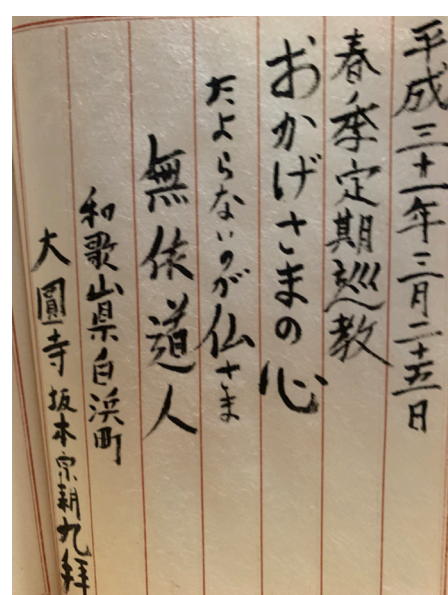 平成三十一年三月二十五日
春季定期巡教
おかげさまの心
たよらないのが仏さま
無依道人
和歌山県白浜町
大圓寺 坂本宗朝九拝